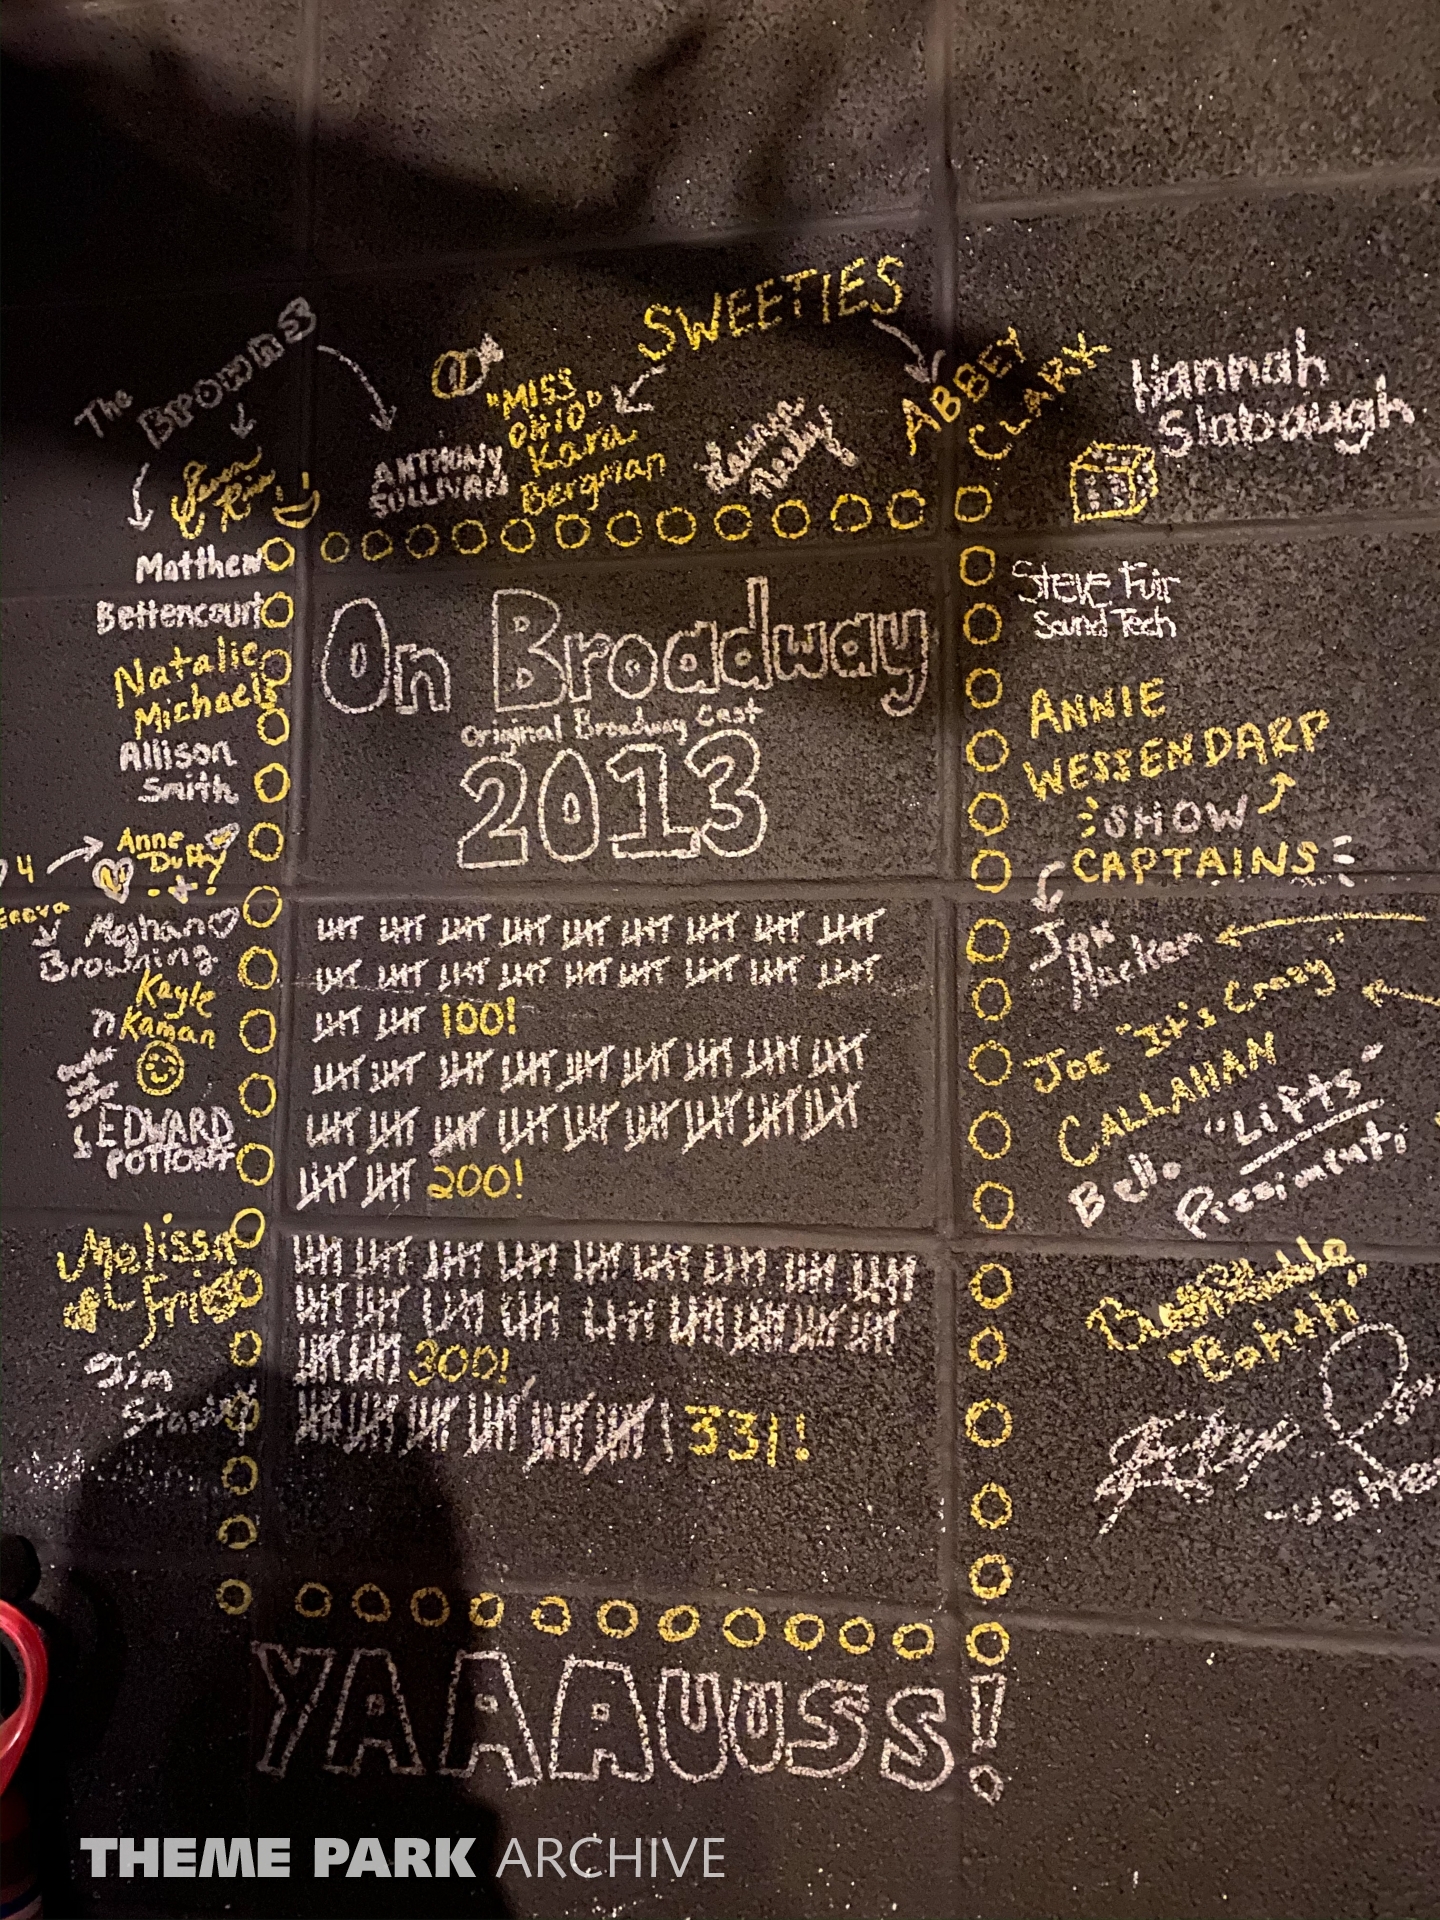 SWEETIES
The Browns
"MISS
OHIO"
Kara
Bergman
ANTHONY
SULLIVAN
ABBEY
CLARK
Hannah
Slabaugh
Matthew
Bettencourt
Natalie
Michaels
Allison
Smith
Anne
Duffy
Meghan
Browning
Kayle
Kaman
EDWARD
Melissa
Jim
On Broadway
Original Broadway Cast
2013
100!
200!
300!
331!
Steve Fuir
Sound Tech
ANNIE
WESSENDARP
SHOW
CAPTAINS
Jon
Hacker
JOE "It's Crazy"
CALLAHAN
Bello "Lifts"
YAAAUUSS!
THEME PARK ARCHIVE